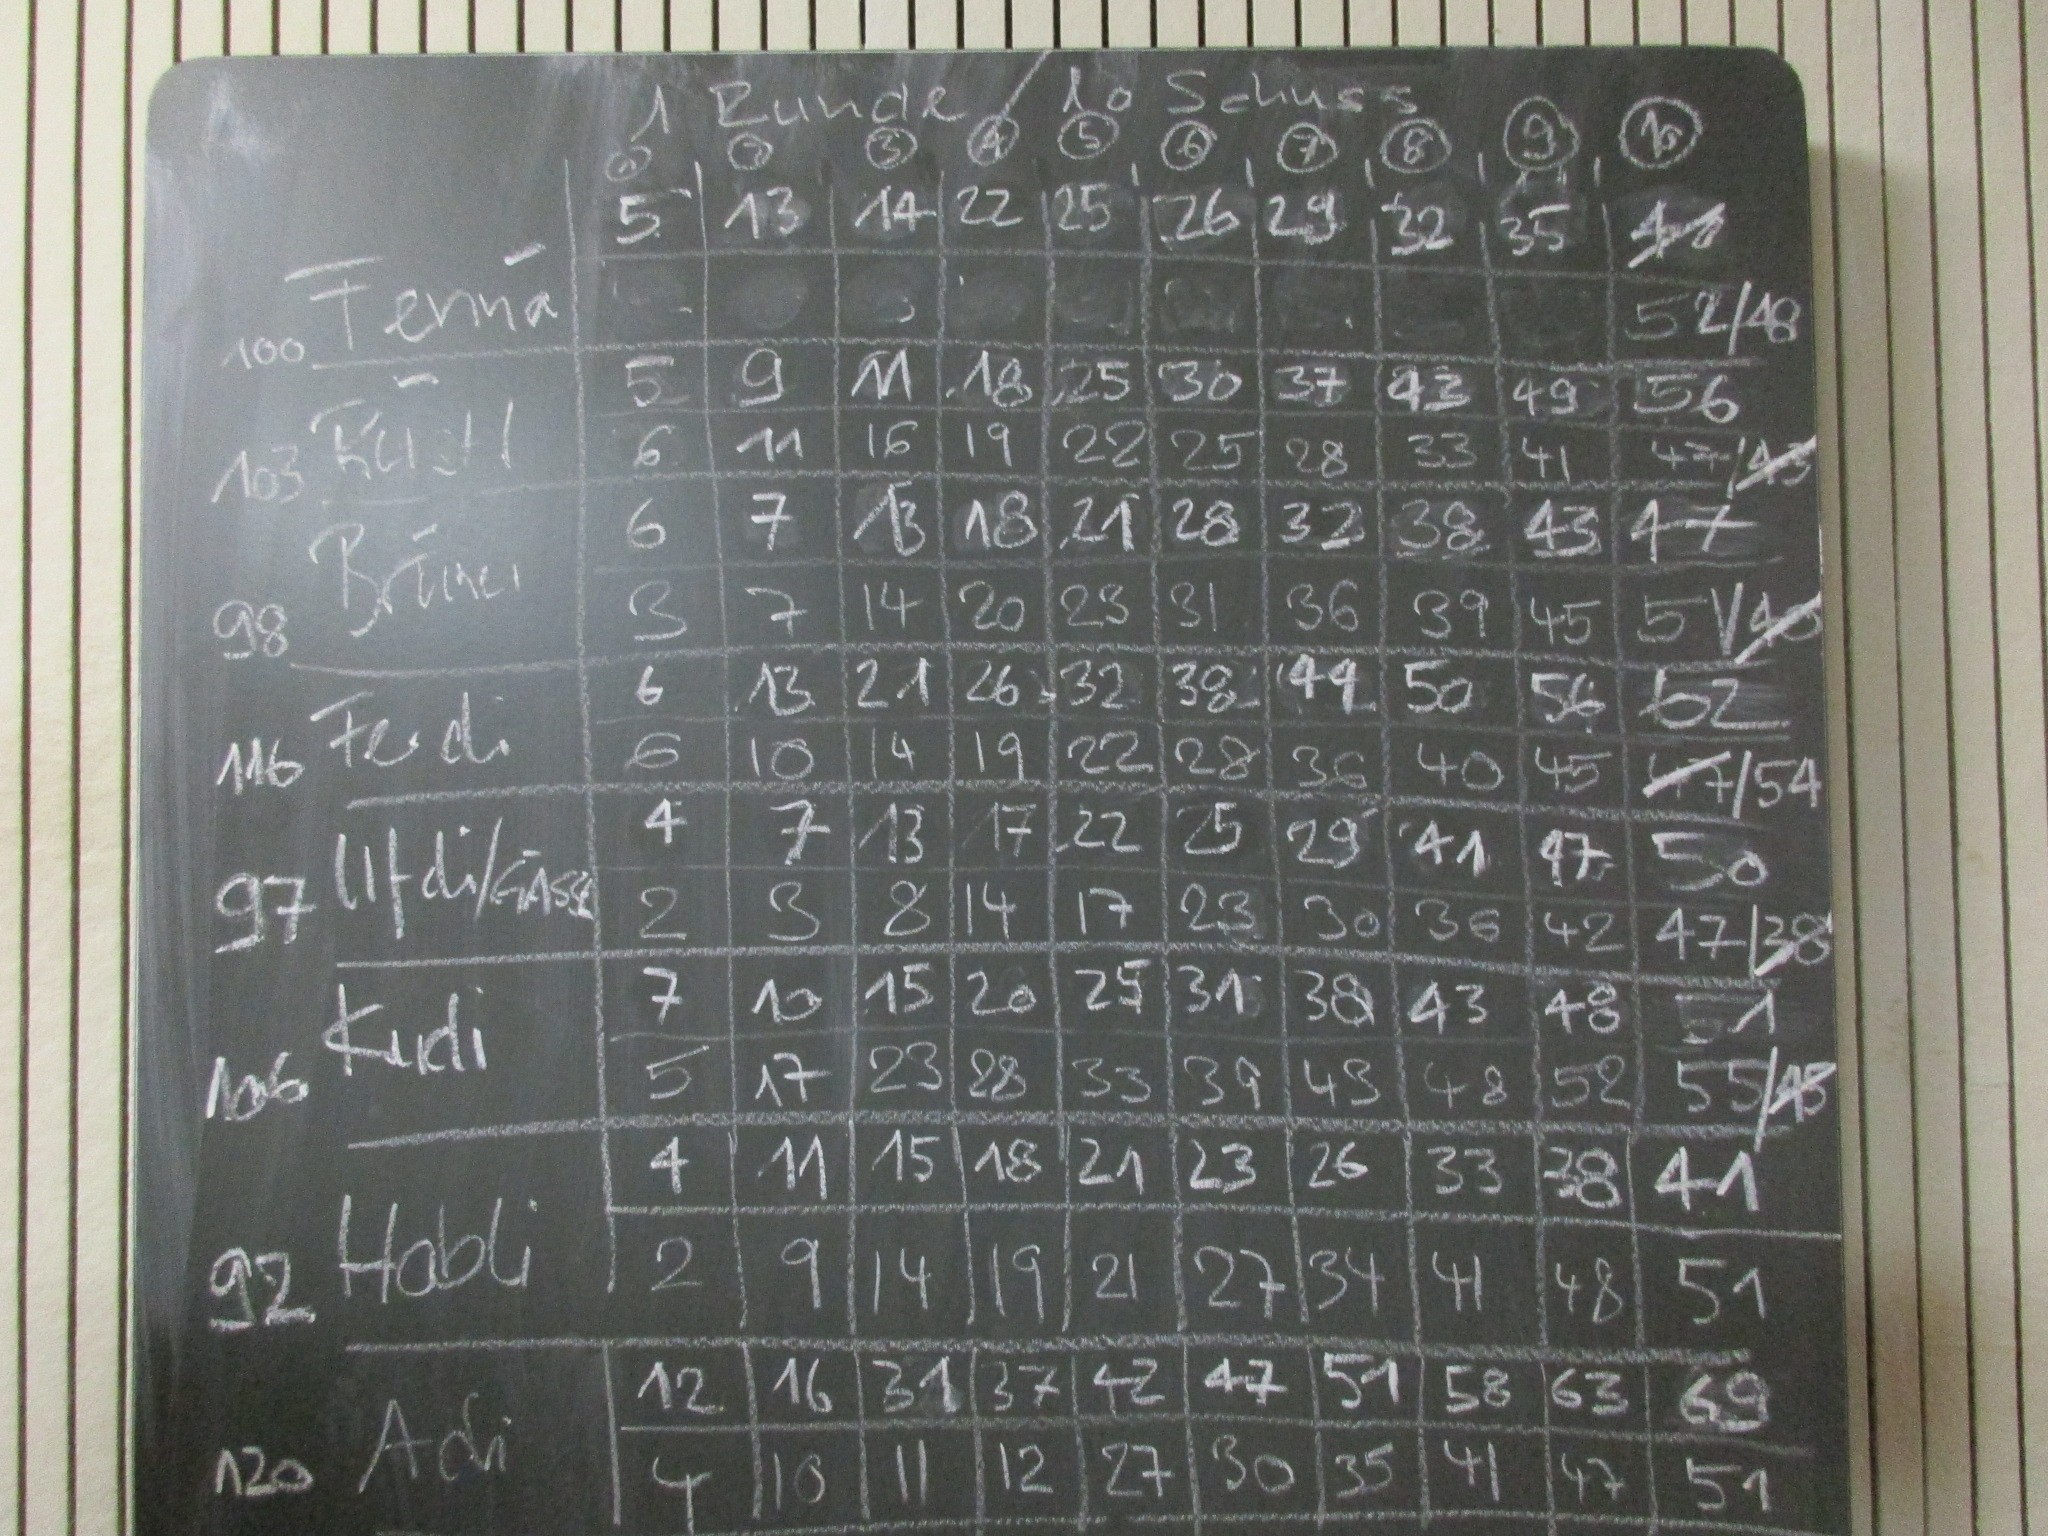 1 Runde / 10 Schuss
① ② ③ ④ ⑤ ⑥ ⑦ ⑧ ⑨ ⑩
5 13 14 22 25 26 29 32 35 41
100 Fernã 52/48
5 9 11 18 25 30 37 43 49 56
103 6 11 16 19 22 25 28 33 41 47/43
6 7 13 18 21 28 32 38 43 47
98 3 7 14 20 23 31 36 39 45 51/40
6 13 21 26 32 38 44 50 56 62
116 Ferdi 6 10 14 19 22 28 36 40 45 47/54
4 7 13 17 22 25 29 41 47 50
97 2 3 8 14 17 23 30 36 42 47/38
7 10 15 20 25 31 38 43 48 51
106 Kudi 5 17 23 28 33 39 43 48 52 55/45
4 11 15 18 21 23 26 33 38 41
92 Habli 2 9 14 19 21 27 34 41 48 51
12 16 31 37 42 47 51 58 63 69
120 Adi 4 10 11 12 27 30 35 41 47 51